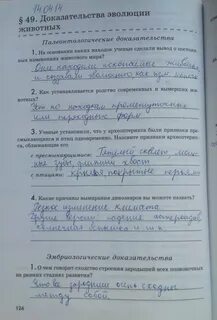 14.04.14
§ 49. Доказательства эволюции
животных
Палеонтологические доказательства
1. На основании каких находок ученые сделали вывод о постоян-
ных изменениях живого мира?
Они находили ископаемые животные
и создавали
2. Как устанавливается родство современных и вымерших жи-
вотных?
Это по находкам промежуточных
или переходных форм
3. Ученые установили, что у археоптерикса были признаки пре-
смыкающихся и птиц одновременно. Назовите признаки археоптерикса,
сближающие его
с пресмыкающимися: Тяжелый скелет, мощ-
ные зубы, длинный хвост
с птицами: крылья, покрытые перьями
4. Какие причины вымирания динозавров вы можете назвать?
Резкое изменение климата.
Другие версии: падение астероидов
Эмбриологические доказательства
1. О чем говорит сходство строения зародышей всех позвоночных
на ранних стадиях развития?
Что все зародыши очень сходны
между собой.
126